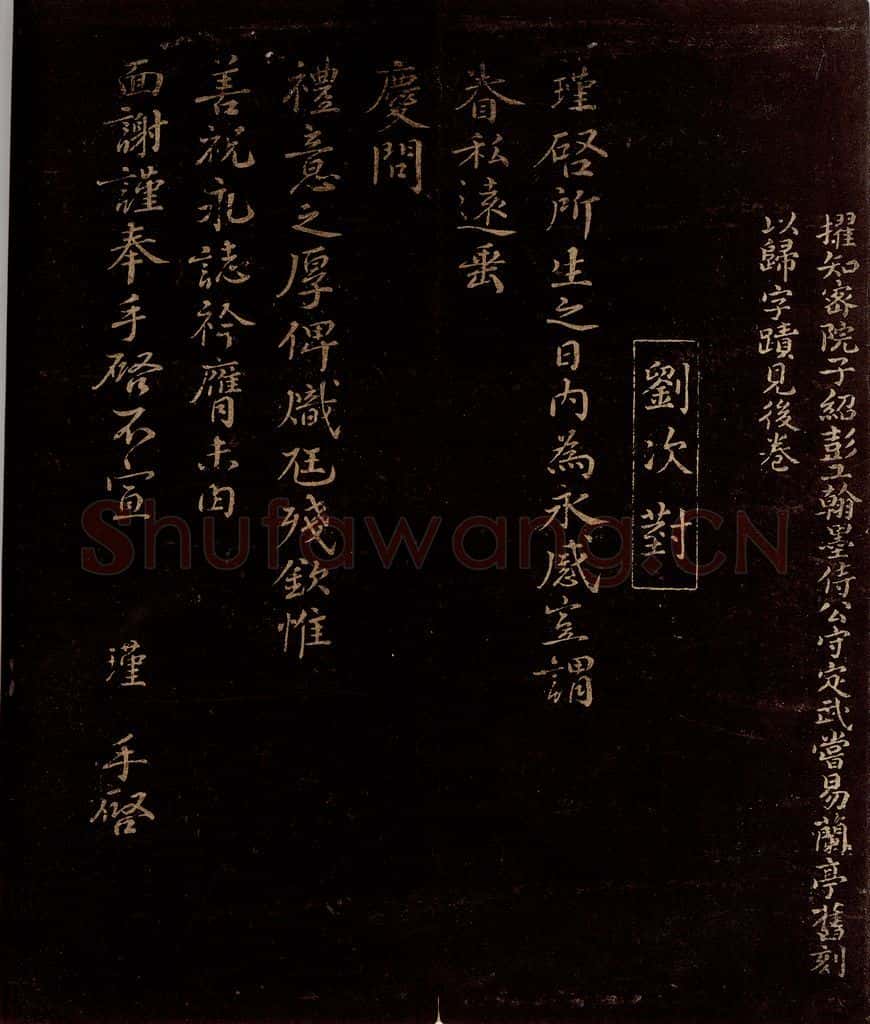 擢知密院子紹彭工翰墨侍公守定武嘗易蘭亭舊刻
以歸字蹟見後卷
劉次對
瑾啓所生之日內為永感豈謂
眷私遠垂
慶問
禮意之厚俾熾尫殘欽惟
善祝永誌衿膺未由
面謝謹奉手啓不宣
瑾 手啓
Shufawang.CN